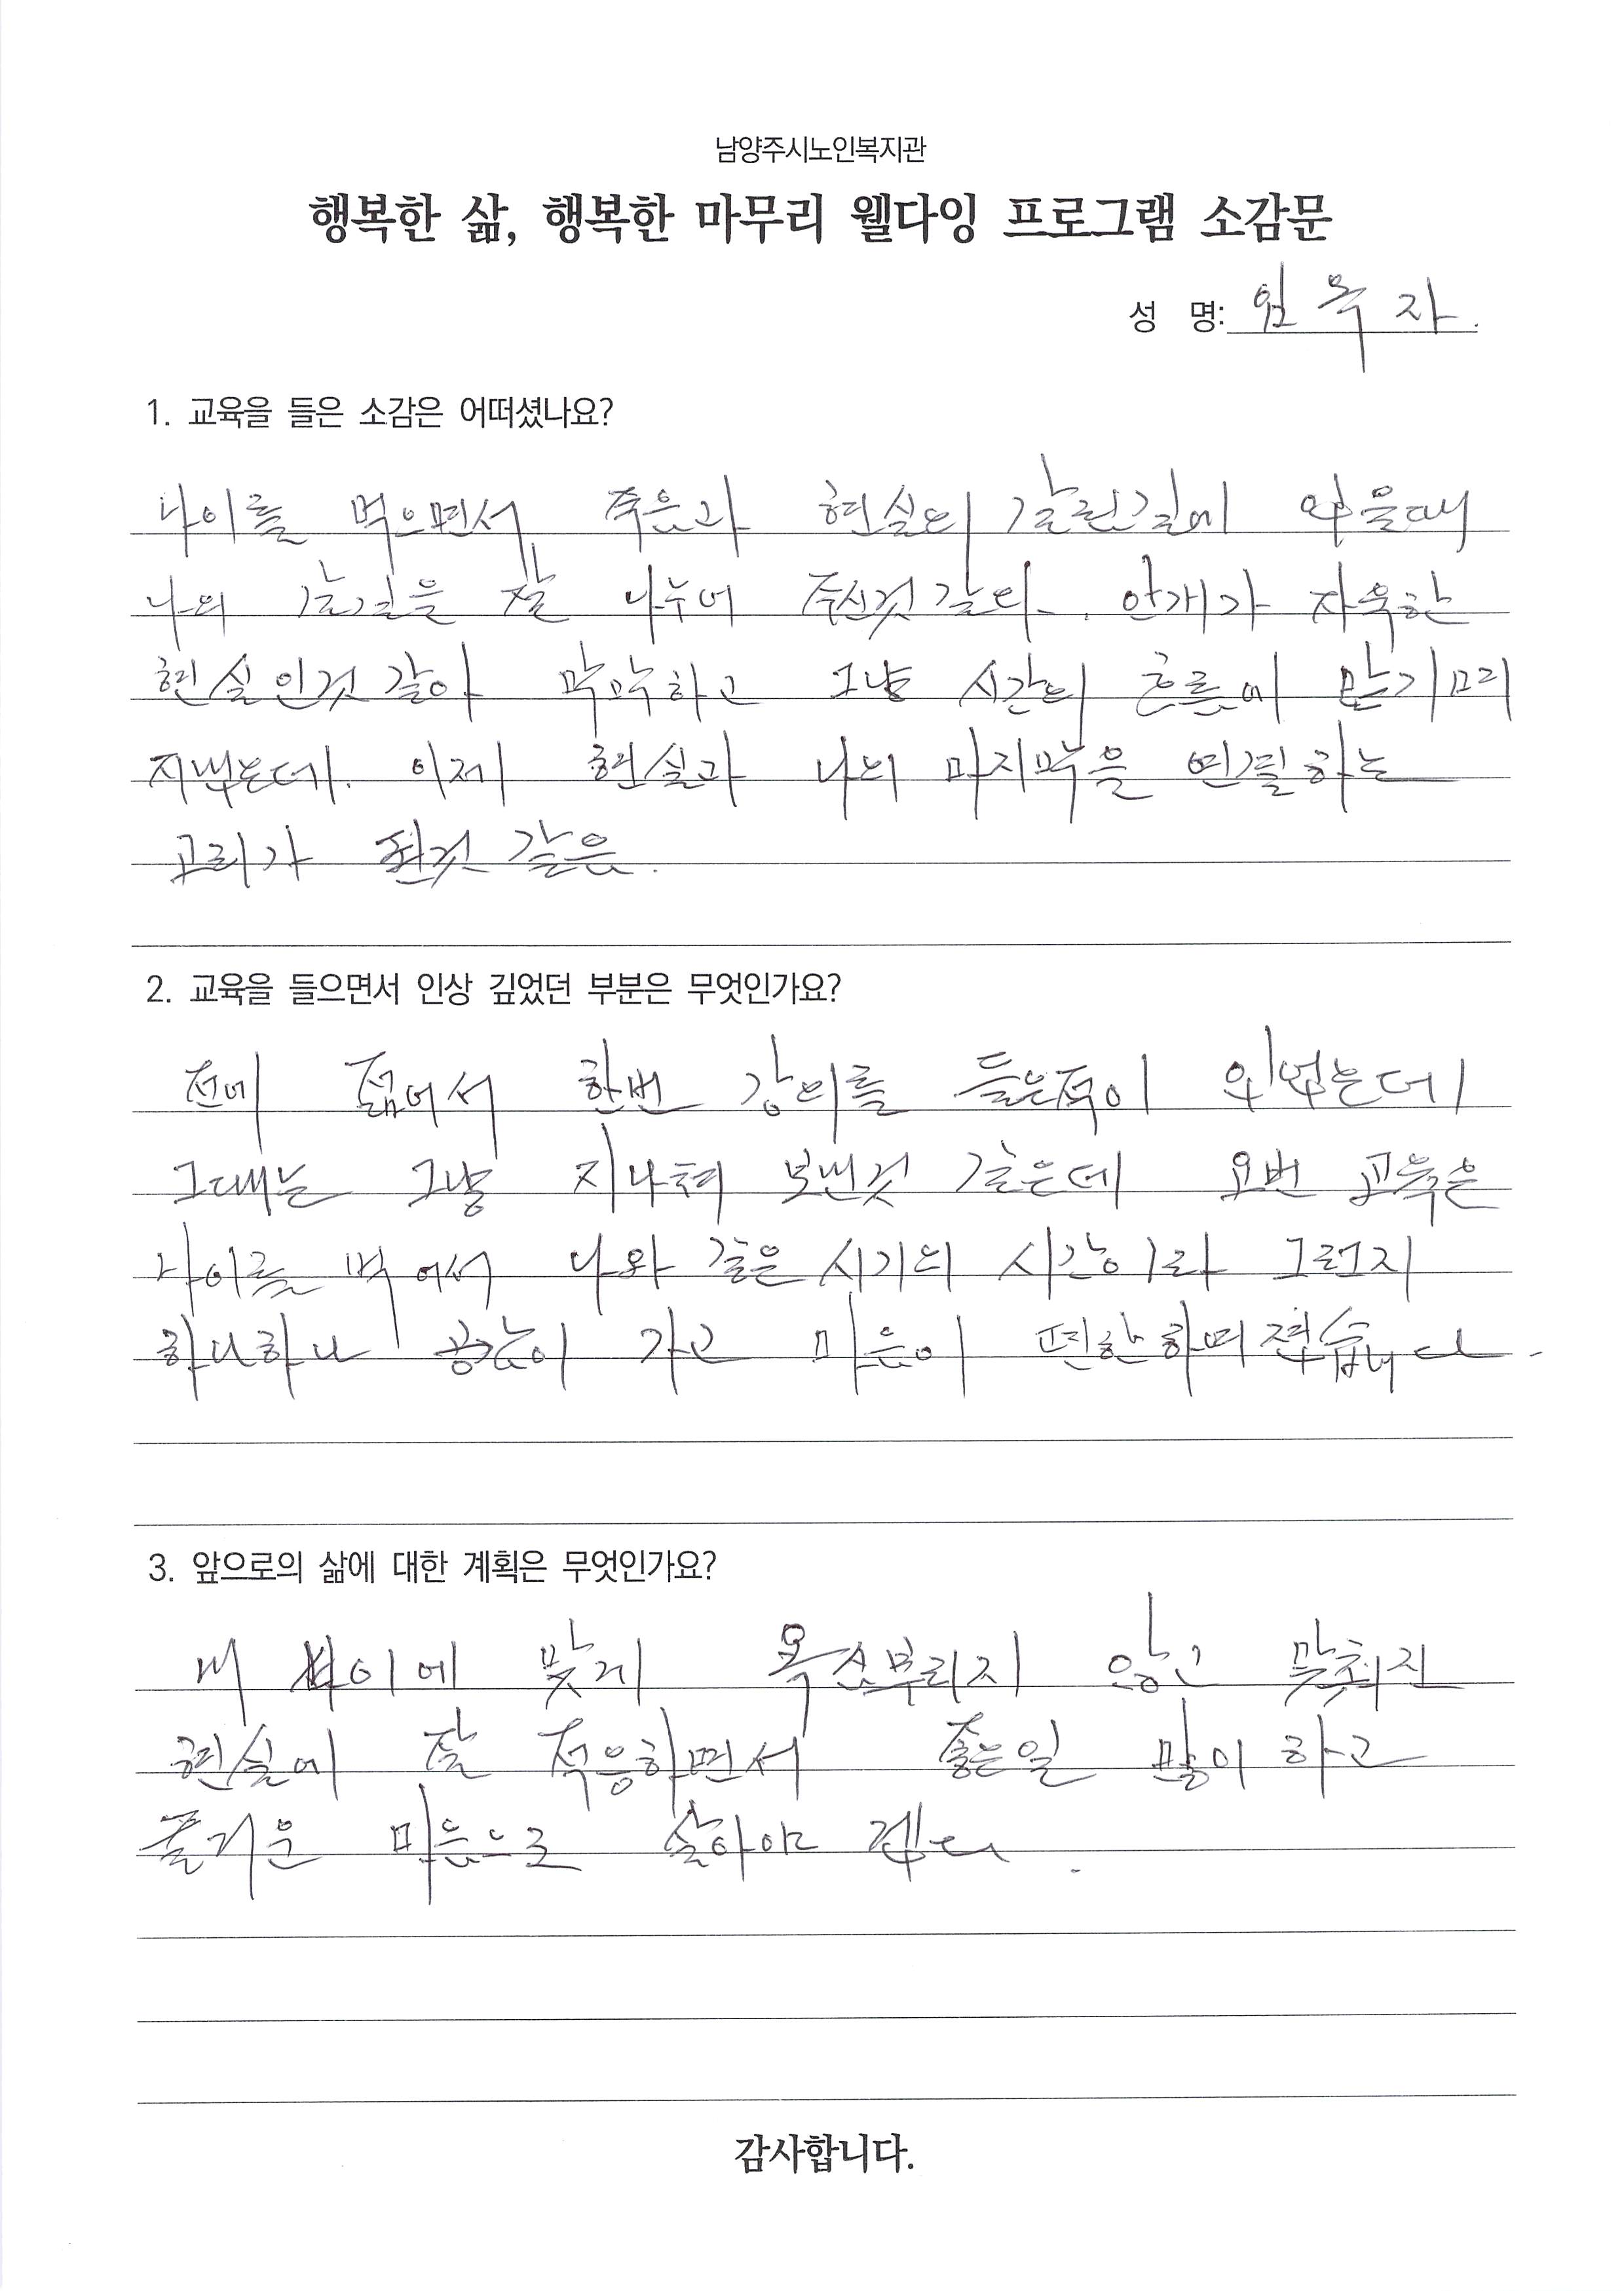 남양주시노인복지관
행복한 삶, 행복한 마무리 웰다잉 프로그램 소감문
성 명: 임옥자.
1. 교육을 들은 소감은 어떠셨나요?
나이를 먹으면서 죽음과 현실의 갈림길에 와을때
나의 갈길을 잘 나누어 주신것 같다. 안개가 자욱한
현실인것 같아 막막하고 그냥 시간의 흐름에 맏기며
지냈는데. 이제 현실과 나의 마지막을 연결하는
고리가 된것 같음.
2. 교육을 들으면서 인상 깊었던 부분은 무엇인가요?
전에 젊어서 한번 강의를 들은적이 있었는데
그대는 그냥 지나쳐 보낸것 같은데 요번 교육은
나이를 먹어서 나와 같은 시기의 시간이라 그런지
하나하나 공감이 가고 마음이 편안하며졌습니다.
3. 앞으로의 삶에 대한 계획은 무엇인가요?
내 나이에 맞게 욕심부리지 않고 맞춰진
현실에 잘 적응하면서 좋은일 많이 하고
즐거운 마음으로 살아야 겠다.
감사합니다.